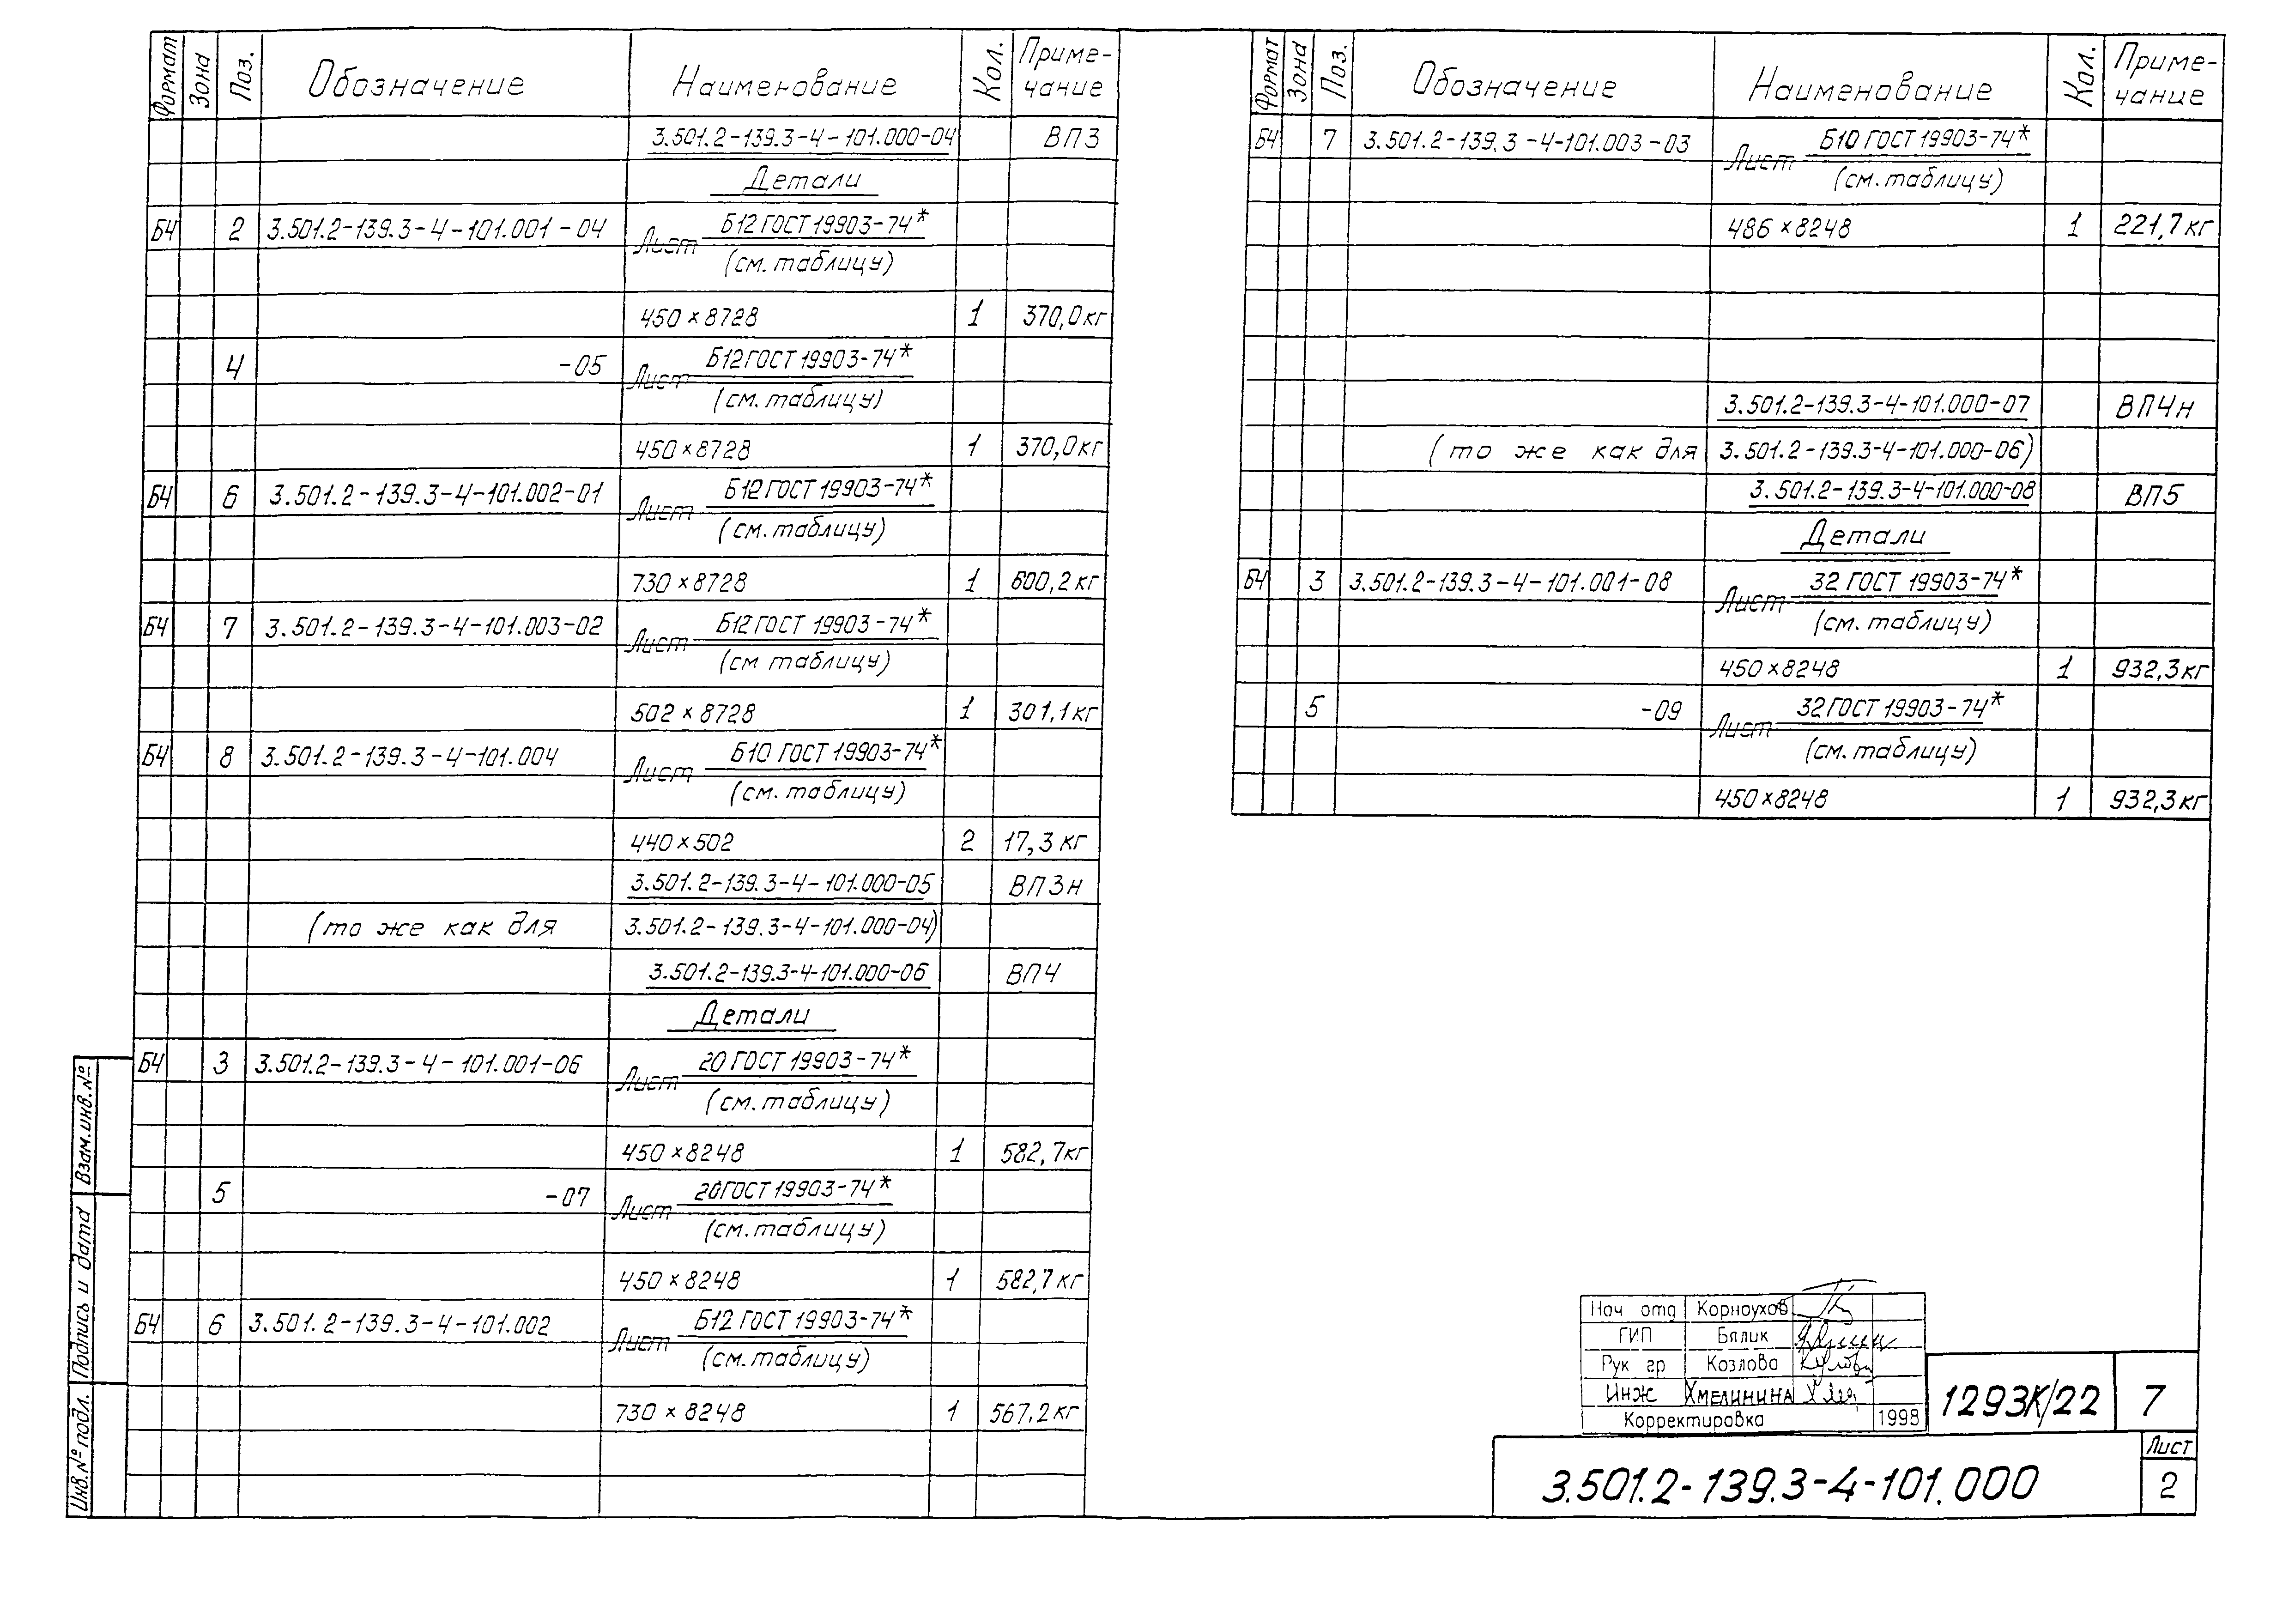 Формат Зона Поз. Обозначение Наименование Кол. Приме-
чание
3.501.2-139.3-4-101.000-04 ВП3
Детали
БЧ 2 3.501.2-139.3-4-101.001-04 Лист Б12 ГОСТ 19903-74*
(см. таблицу)
450×8728 1 370,0кг
4 -05 Лист Б12 ГОСТ 19903-74*
(см. таблицу)
450×8728 1 370,0кг
БЧ 6 3.501.2-139.3-4-101.002-01 Лист Б12 ГОСТ 19903-74*
(см. таблицу)
730×8728 1 600,2кг
БЧ 7 3.501.2-139.3-4-101.003-02 Лист Б12 ГОСТ 19903-74*
(см таблицу)
502×8728 1 301,1кг
БЧ 8 3.501.2-139.3-4-101.004 Лист Б10 ГОСТ 19903-74*
(см. таблицу)
440×502 2 17,3кг
3.501.2-139.3-4-101.000-05 ВП3н
(то же как для 3.501.2-139.3-4-101.000-04)
3.501.2-139.3-4-101.000-06 ВП4
Детали
БЧ 3 3.501.2-139.3-4-101.001-06 Лист 20 ГОСТ 19903-74*
(см. таблицу)
450×8248 1 582,7кг
5 -07 Лист 20 ГОСТ 19903-74*
(см. таблицу)
450×8248 1 582,7кг
БЧ 6 3.501.2-139.3-4-101.002 Лист Б12 ГОСТ 19903-74*
(см. таблицу)
730×8248 1 567,2кг
Формат Зона Поз. Обозначение Наименование Кол. Приме-
чание
БЧ 7 3.501.2-139.3-4-101.003-03 Лист Б10 ГОСТ 19903-74*
(см. таблицу)
486×8248 1 221,7кг
3.501.2-139.3-4-101.000-07 ВП4н
(то же как для 3.501.2-139.3-4-101.000-06)
3.501.2-139.3-4-101.000-08 ВП5
Детали
БЧ 3 3.501.2-139.3-4-101.001-08 Лист 32 ГОСТ 19903-74*
(см. таблицу)
450×8248 1 932,3кг
5 -09 Лист 32 ГОСТ 19903-74*
(см. таблицу)
450×8248 1 932,3кг
Инв.№ подл. Подпись и дата Взам.инв.№
Нач отд Корноухов
ГИП Бялик
Рук гр Козлова
Инж Хмелинина
Корректировка 1998
1293К/22 7
3.501.2-139.3-4-101.000
Лист
2